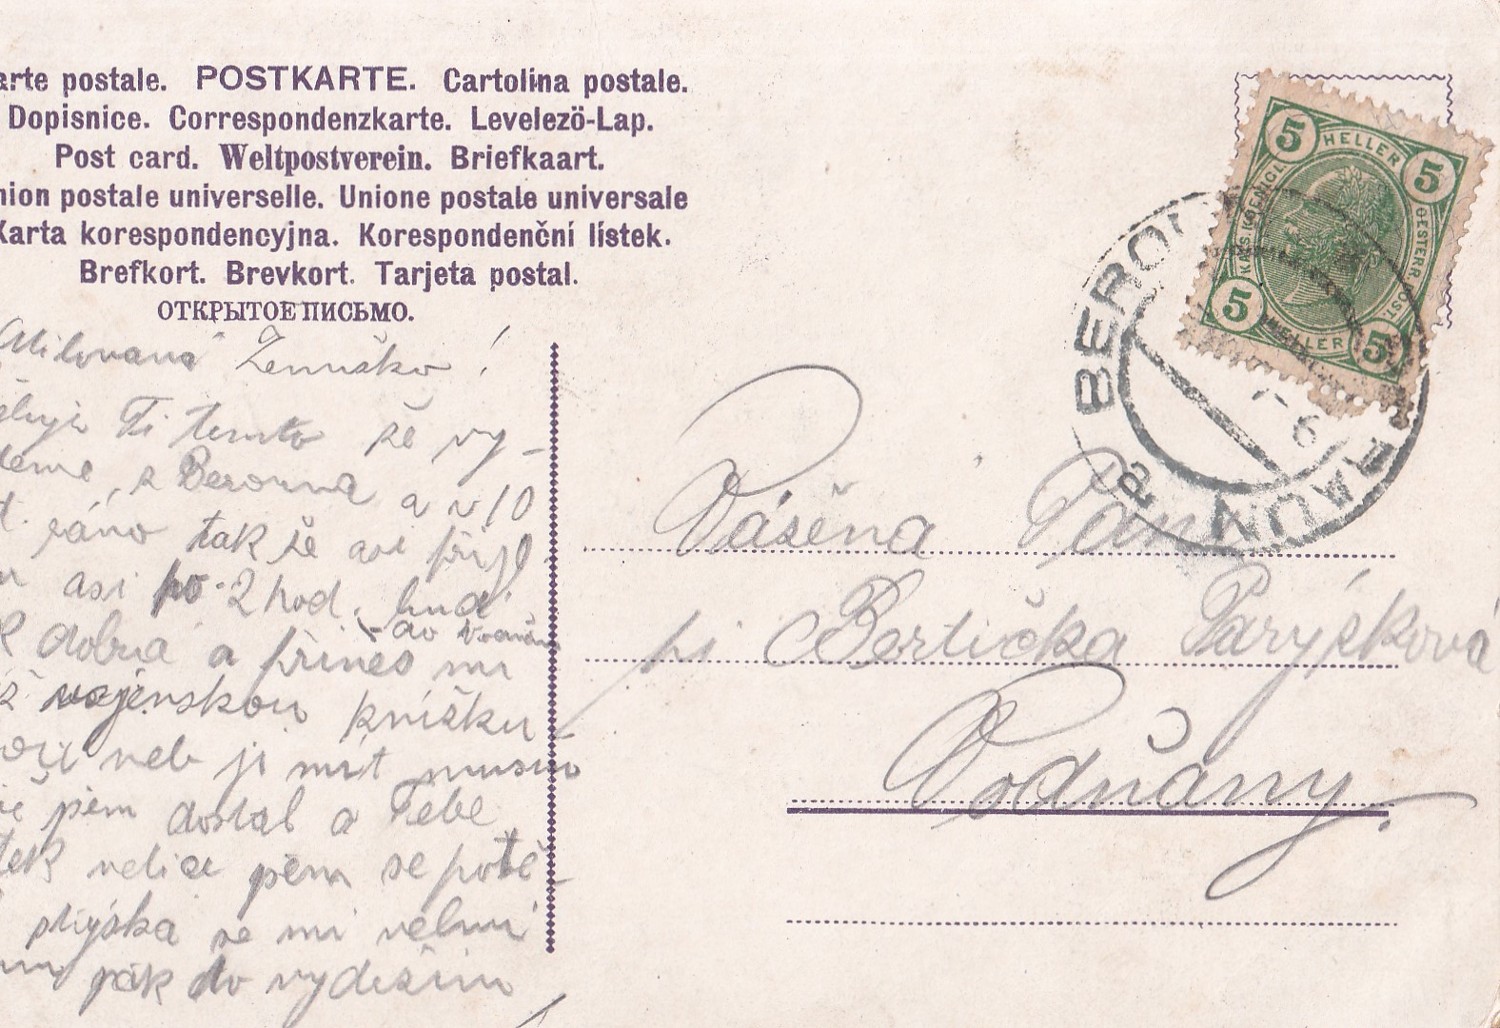 arte postale. POSTKARTE. Cartolina postale.
Dopisnice. Correspondenzkarte. Levelezö-Lap.
Post card. Weltpostverein. Briefkaart.
nion postale universelle. Unione postale universale
Karta korespondencyjna. Korespondenční lístek.
Brefkort. Brevkort. Tarjeta postal.
ОТКРЫТОЕ ПИСЬМО.
Milovaná Ženuško!
Ti tímto že vy-
z Berouna a v 10
ráno tak že asi
asi po 2 hod. buď
do Vodňan
dobrá a přines mi
vojenskou knížku
neb ji mít musím
dostal a Tebe
velice se potě-
stýská se mi velmi
pak do
5 HELLER 5
KAIS. KOENIGL. OESTERR. POST.
5 HELLER 5
BEROUN
BERAUN
6
Vážená Paní
pí Bertička Parýzková
Vodňany.